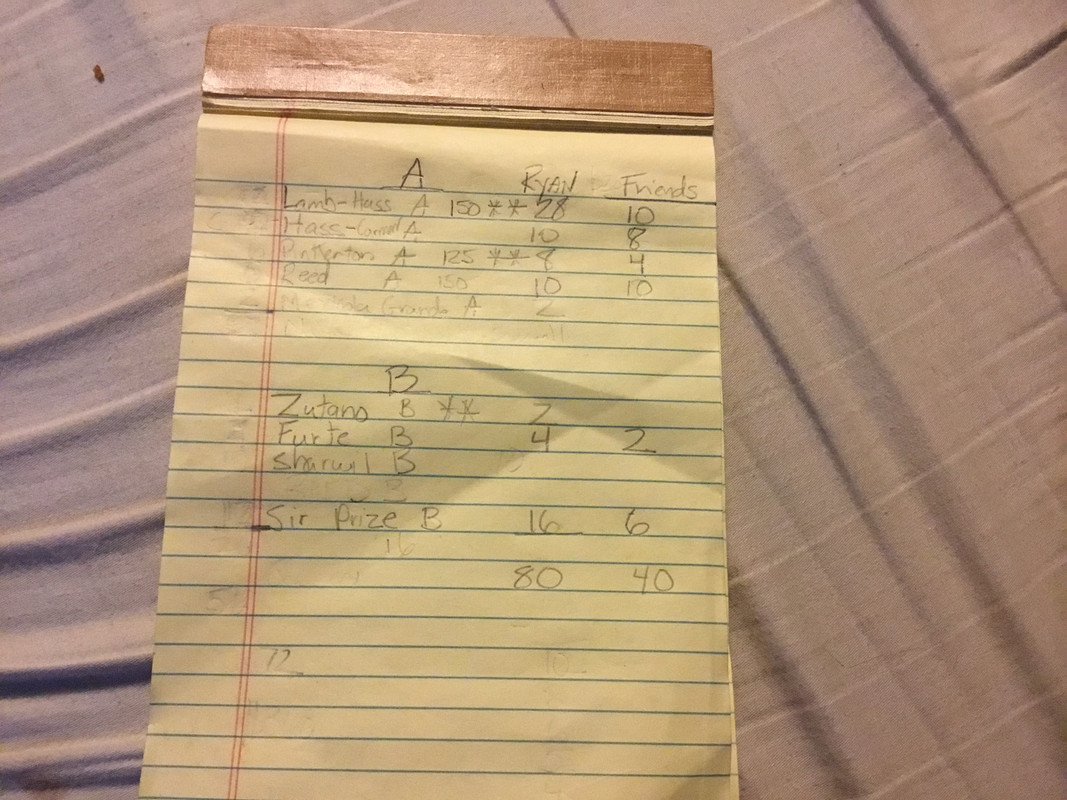 A RYAN Friends
Lamb-Hass A 150 ** 28 10
Hass- A 10 8
Pinkerton A 125 ** 8 4
Reed A 150 10 10
Grande A 2
B
Zutano B ** 2
Furte B 4 2
Sharwil B
Sir Prize B 16 6
16
80 40
12 10